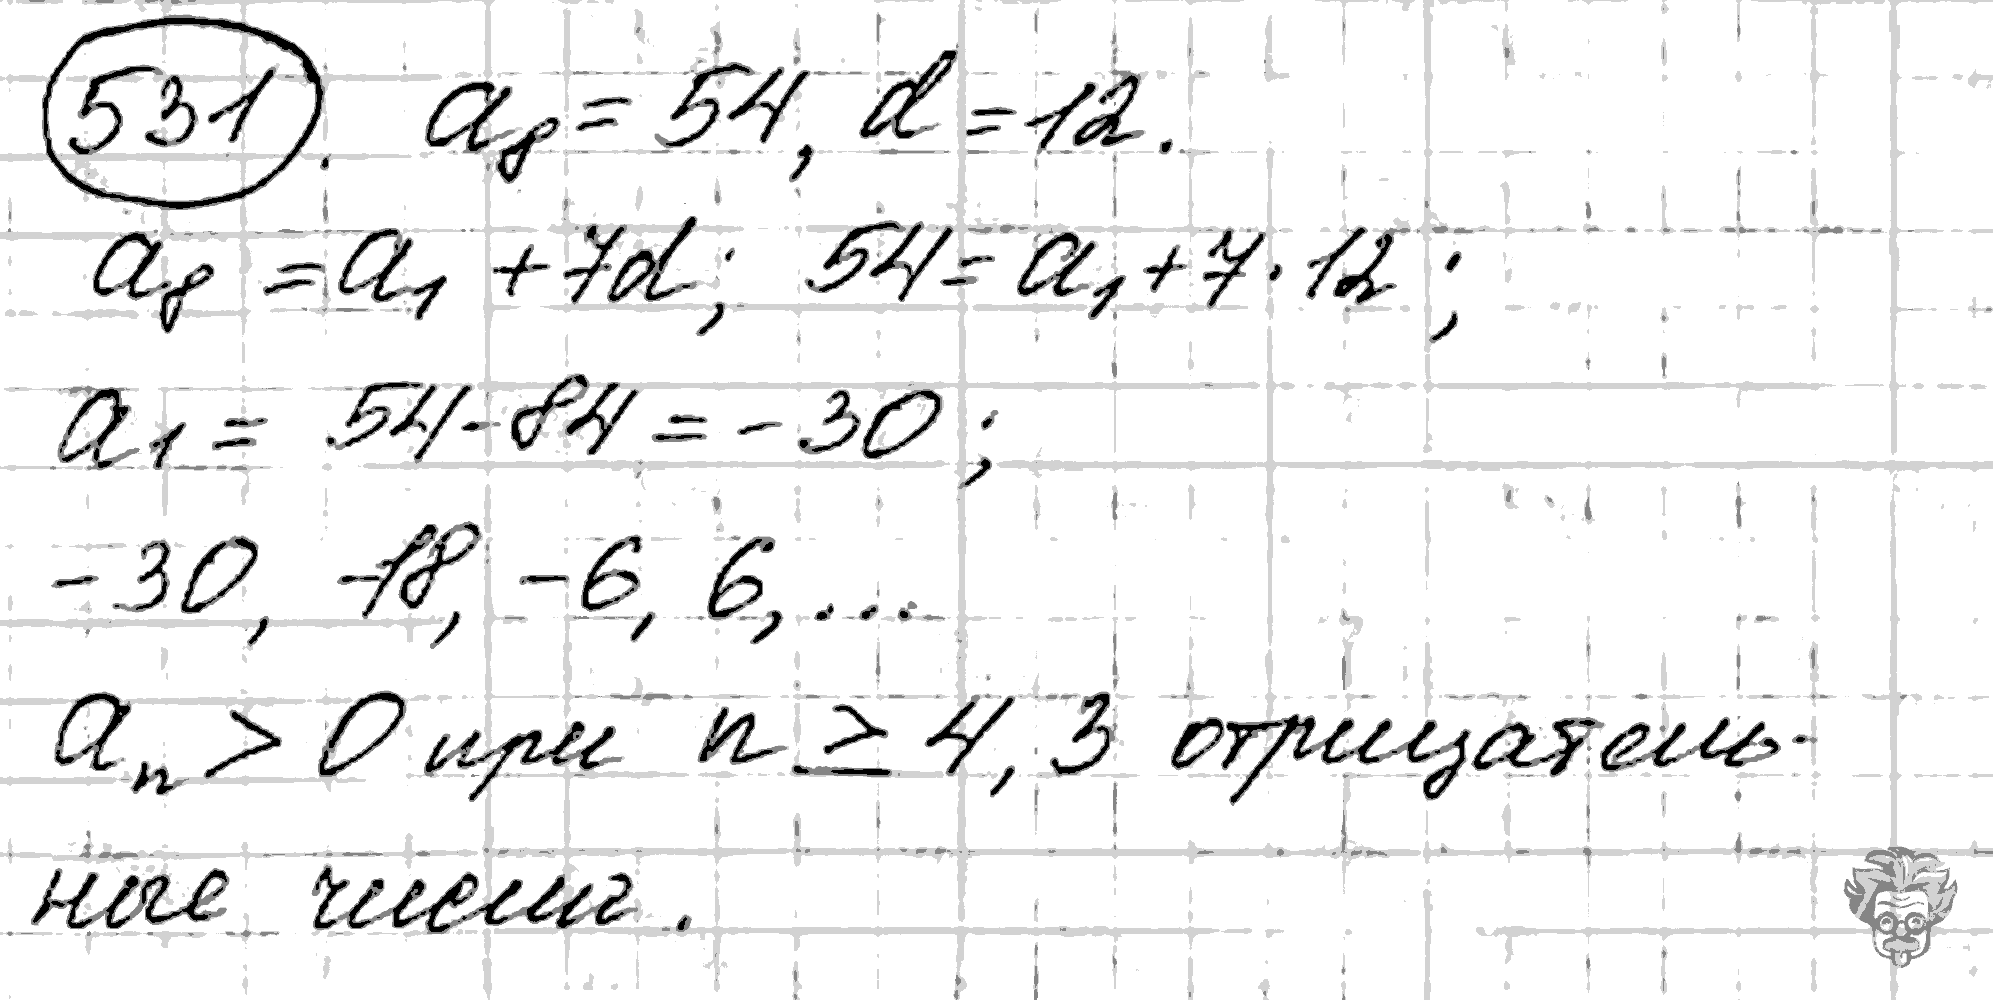 531. a₈ = 54, d = 12.
a₈ = a₁ + 7d; 54 = a₁ + 7 · 12;
a₁ = 54 - 84 = -30;
-30, -18, -6, 6, ...
aₙ > 0 при n ≥ 4, 3 отрицатель-
ные числа.